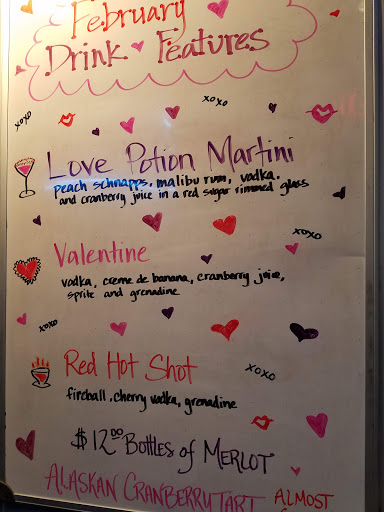 February
Drink Features
xoxo
xoxo
Love Potion Martini
peach schnapps, malibu rum, vodka.
and cranberry juice in a red sugar rimmed glass
xoxo
Valentine
vodka, creme de banana, cranberry juice,
sprite and grenadine
xoxo
Red Hot Shot
xoxo
fireball, cherry vodka, grenadine
$12.00 Bottles of Merlot
ALASKAN CRANBERRY TART
ALMOST